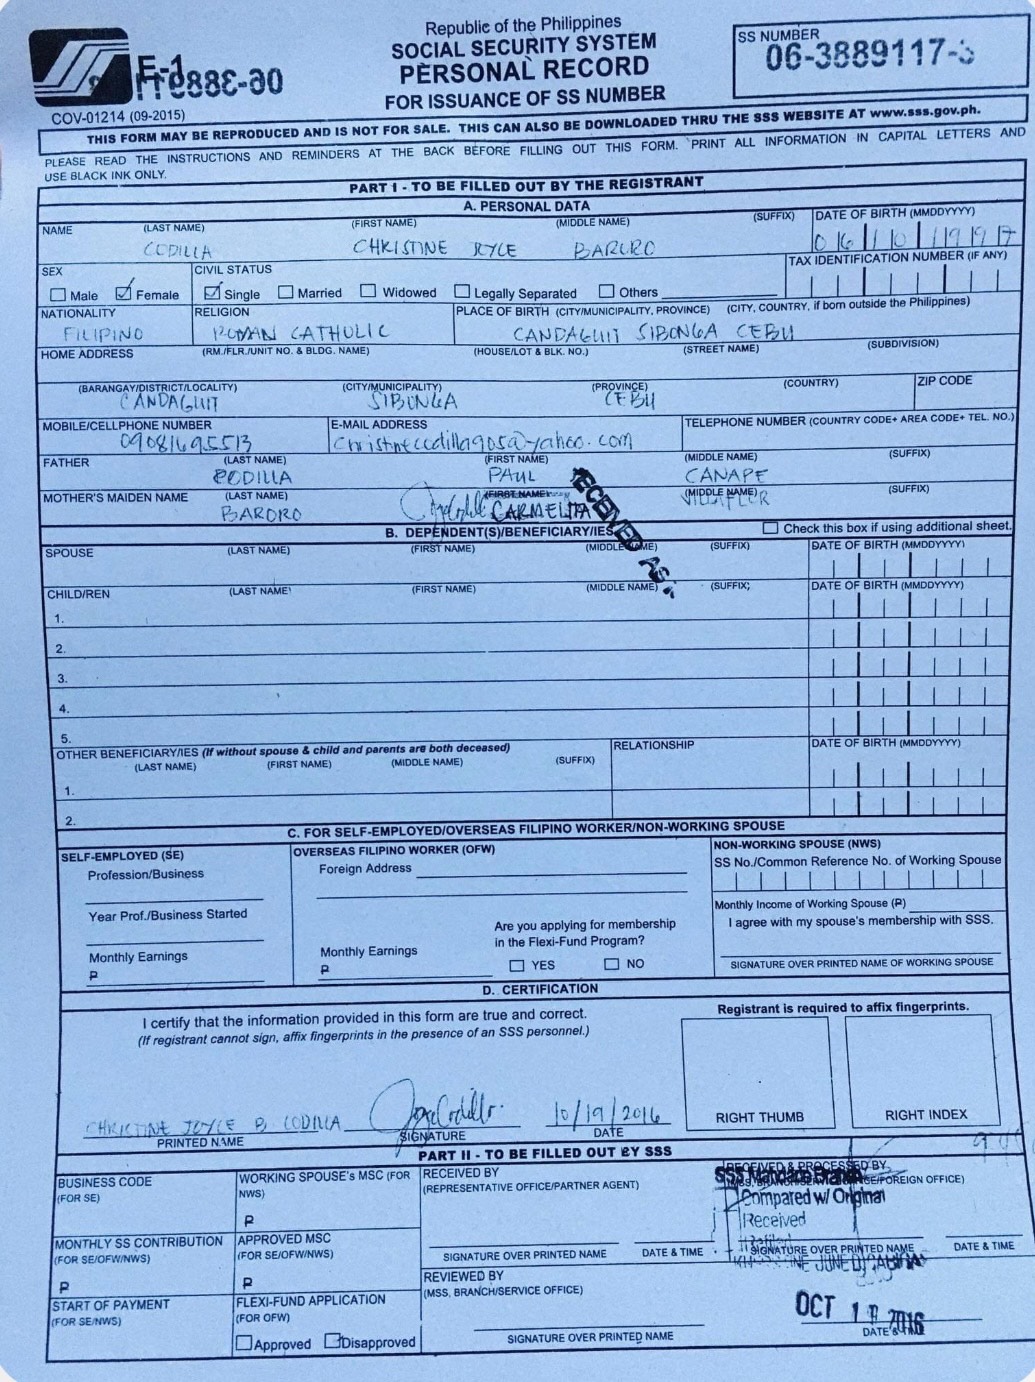 Republic of the Philippines
SOCIAL SECURITY SYSTEM
PERSONAL RECORD
FOR ISSUANCE OF SS NUMBER
E-1
COV-01214 (09-2015)
SS NUMBER
06-3889117-3
THIS FORM MAY BE REPRODUCED AND IS NOT FOR SALE. THIS CAN ALSO BE DOWNLOADED THRU THE SSS WEBSITE AT www.sss.gov.ph.
PLEASE READ THE INSTRUCTIONS AND REMINDERS AT THE BACK BEFORE FILLING OUT THIS FORM. PRINT ALL INFORMATION IN CAPITAL LETTERS AND
USE BLACK INK ONLY.
PART I - TO BE FILLED OUT BY THE REGISTRANT
A. PERSONAL DATA
NAME (LAST NAME) (FIRST NAME) (MIDDLE NAME) (SUFFIX) DATE OF BIRTH (MMDDYYYY)
CODILLA CHRISTINE JOYCE BARORO 06101997
SEX CIVIL STATUS TAX IDENTIFICATION NUMBER (IF ANY)
Male Female Single Married Widowed Legally Separated Others
NATIONALITY RELIGION PLACE OF BIRTH (CITY/MUNICIPALITY, PROVINCE) (CITY, COUNTRY, if born outside the Philippines)
FILIPINO ROMAN CATHOLIC CANDAGUIT SIBONGA CEBU
HOME ADDRESS (RM./FLR./UNIT NO. & BLDG. NAME) (HOUSE/LOT & BLK. NO.) (STREET NAME) (SUBDIVISION)
(BARANGAY/DISTRICT/LOCALITY) (CITY/MUNICIPALITY) (PROVINCE) (COUNTRY) ZIP CODE
CANDAGUIT SIBONGA CEBU
MOBILE/CELLPHONE NUMBER E-MAIL ADDRESS TELEPHONE NUMBER (COUNTRY CODE+ AREA CODE+ TEL. NO.)
09081695513 christinecodilla905@yahoo.com
FATHER (LAST NAME) (FIRST NAME) (MIDDLE NAME) (SUFFIX)
CODILLA PAUL CANAPE
MOTHER'S MAIDEN NAME (LAST NAME) (FIRST NAME) (MIDDLE NAME) (SUFFIX)
BARORO CARMELITA VILLAFLOR
RECEIVED AS
B. DEPENDENT(S)/BENEFICIARY/IES Check this box if using additional sheet.
SPOUSE (LAST NAME) (FIRST NAME) (MIDDLE NAME) (SUFFIX) DATE OF BIRTH (MMDDYYYY)
CHILD/REN (LAST NAME) (FIRST NAME) (MIDDLE NAME) (SUFFIX) DATE OF BIRTH (MMDDYYYY)
1.
2.
3.
4.
5.
OTHER BENEFICIARY/IES (If without spouse & child and parents are both deceased) RELATIONSHIP DATE OF BIRTH (MMDDYYYY)
(LAST NAME) (FIRST NAME) (MIDDLE NAME) (SUFFIX)
1.
2.
C. FOR SELF-EMPLOYED/OVERSEAS FILIPINO WORKER/NON-WORKING SPOUSE
SELF-EMPLOYED (SE)
Profession/Business
Year Prof./Business Started
Monthly Earnings
₱
OVERSEAS FILIPINO WORKER (OFW)
Foreign Address
Monthly Earnings
₱
Are you applying for membership
in the Flexi-Fund Program?
YES NO
NON-WORKING SPOUSE (NWS)
SS No./Common Reference No. of Working Spouse
Monthly Income of Working Spouse (₱)
I agree with my spouse's membership with SSS.
SIGNATURE OVER PRINTED NAME OF WORKING SPOUSE
D. CERTIFICATION
I certify that the information provided in this form are true and correct.
(If registrant cannot sign, affix fingerprints in the presence of an SSS personnel.)
Registrant is required to affix fingerprints.
RIGHT THUMB RIGHT INDEX
CHRISTINE JOYCE B. CODILLA 10/19/2016
PRINTED NAME SIGNATURE DATE
PART II - TO BE FILLED OUT BY SSS
BUSINESS CODE
(FOR SE)
WORKING SPOUSE's MSC (FOR
NWS)
₱
RECEIVED BY
(REPRESENTATIVE OFFICE/PARTNER AGENT)
SIGNATURE OVER PRINTED NAME DATE & TIME
RECEIVED & PROCESSED BY
SSS Mandaue Branch
Compared w/ Original
Received
SIGNATURE OVER PRINTED NAME DATE & TIME
MONTHLY SS CONTRIBUTION
(FOR SE/OFW/NWS)
₱
APPROVED MSC
(FOR SE/OFW/NWS)
₱
REVIEWED BY
(MSS, BRANCH/SERVICE OFFICE)
SIGNATURE OVER PRINTED NAME
OCT 2016
DATE & TIME
START OF PAYMENT
(FOR SE/NWS)
FLEXI-FUND APPLICATION
(FOR OFW)
Approved Disapproved